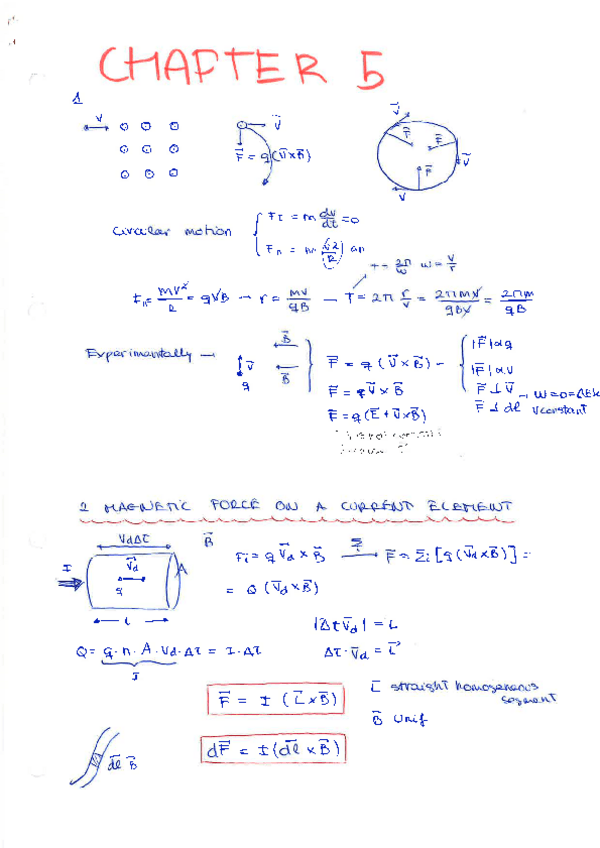 CHAPTER 5
1
V
V⃗
F⃗ = q(V⃗×B⃗)
V⃗
F⃗ F⃗
V⃗
F⃗
V⃗
Circular motion { Ft = m dv/dt = 0
Fn = m (v²/R) an
T = 2π/ω ω = v/r
Fn = mv²/R = qVB → r = mv/qB → T = 2π r/v = 2πmv/qBv = 2πm/qB
Experimentally → V⃗ q B⃗ B⃗ } F⃗ = q (V⃗×B⃗) → { |F⃗| α q
|F⃗| α v
F⃗ = qV⃗ × B⃗ F⃗ ⊥ V⃗ → W=0=ΔEk
F⃗ = q(E⃗ + V⃗×B⃗) F⃗ ⊥ dl V constant
2 MAGNETIC FORCE ON A CURRENT ELEMENT
VdΔt B⃗
I V⃗d A q
L
Fi = q V⃗d × B⃗ → F⃗ = Σi [q(V⃗d×B⃗)] =
= Q (V⃗d×B⃗)
|Δt V⃗d| = L
Q = q · n · A · Vd · Δt = I · Δt Δt · V⃗d = L⃗
I
F⃗ = I (L⃗×B⃗)
L⃗ straight homogeneous segment
B⃗ unif
dF⃗ = I (dl⃗ ×B⃗)
dl⃗ B⃗